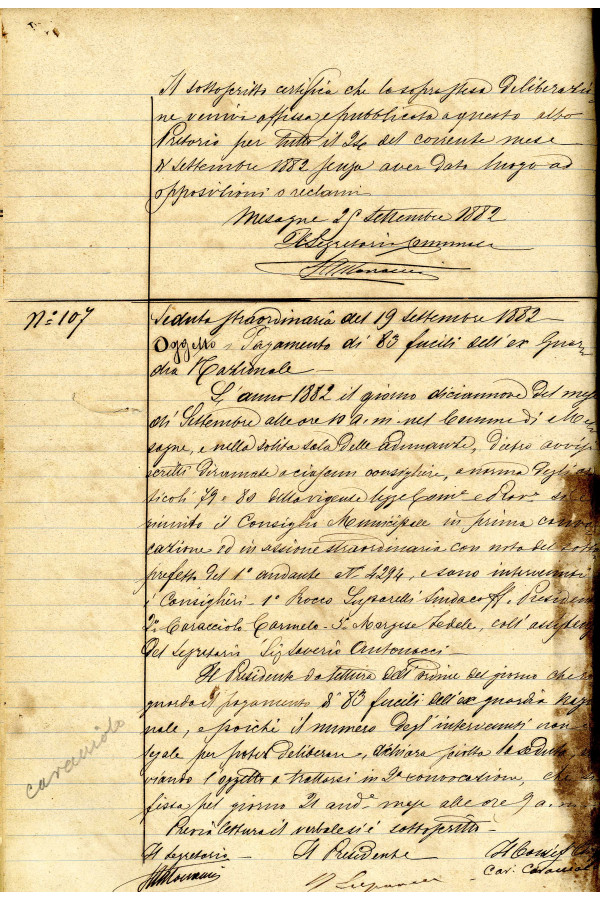 Il sottoscritto certifica che la soprastesa deliberazio
ne veniva affissa e pubblicata a questo albo
Pretorio per tutto il 24 del corrente mese
di Settembre 1882 senza aver dato luogo ad
opposizioni o reclami
Mesagne 25 Settembre 1882
Il Segretario Comunale
N.° 107
Seduta straordinaria del 19 settembre 1882
Oggetto - Pagamento di 83 fucili dell'ex Guar
dia Nazionale
L'anno 1882 il giorno diciannove del mese
di Settembre alle ore 10 a.m. nel Comune di Me
sagne, e nella solita sala delle adunanze, dietro avvisi
scritti diramati a ciascun consigliere, a norma degli ar
ticoli 79 e 80 della vigente legge Com.e e Prov.e si è
riunito il Consiglio Municipale in prima convo
cazione ed in sessione straordinaria con nota del sotto
prefetto del 1° andante N. 4294, e sono intervenuti
i Consiglieri 1° Rocco Sindaco ff. e President
2° Caracciolo Carmelo - 3° Marzese Fedele, coll'assistenz
del Segretario Sig. Saverio Antonucci
Il Presidente da lettura dell'ordine del giorno che ri
guarda il pagamento di 83 fucili dell'ex guardia Nazio
nale, e poichè il numero degl'intervenuti non
legale per poter deliberare, dichiara sciolta la seduta,
viando l'oggetto a trattarsi in 2a convocazione, che
fissa pel giorno 21 and.e mese alle ore 9 a.m.
Previa lettura il verbale si è sottoscritto
caracciolo
Il Segretario Il Presidente Il Consig
Car. Caracciol